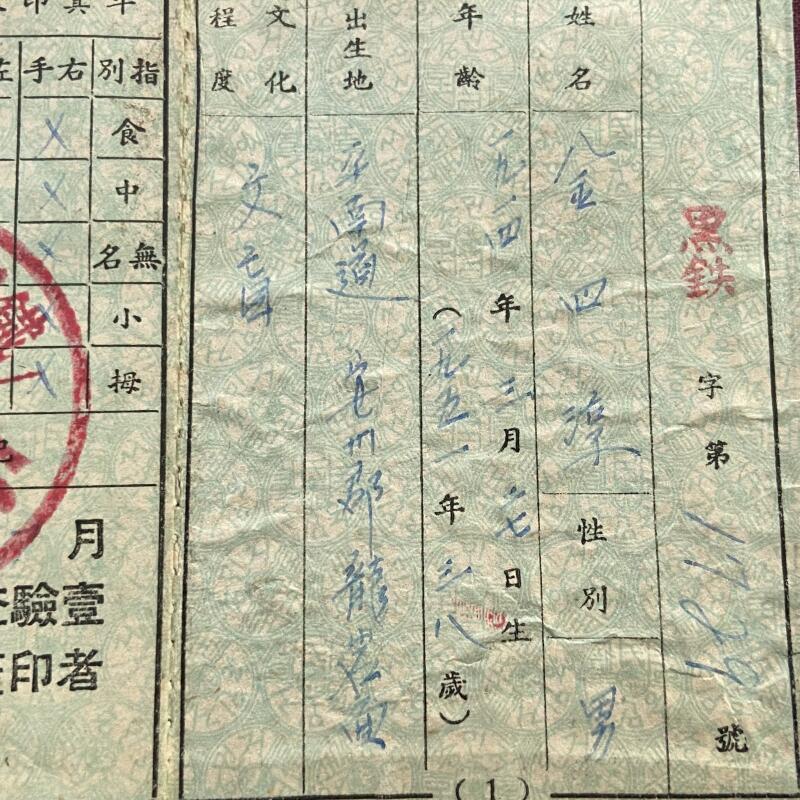 黑鉄 字第 號
姓名 金四淳 性別 男
年齡 一九一四年三月 日生
(一九五一年三八歲)
出生地 平南道 安州郡 龍 面
文化程度 文盲
(1)
指別 右手
食 X
中 X
無名 X
小 X
拇 X
月
壹驗
者印